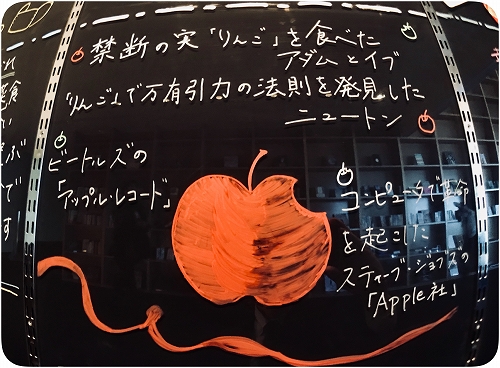 禁断の実「りんご」を食べた
アダムとイブ
「りんご」で万有引力の法則を発見した
ニュートン
ビートルズの
「アップル・レコード」
コンピュータで革命
を起こした
スティーブ・ジョブズの
「Apple社」